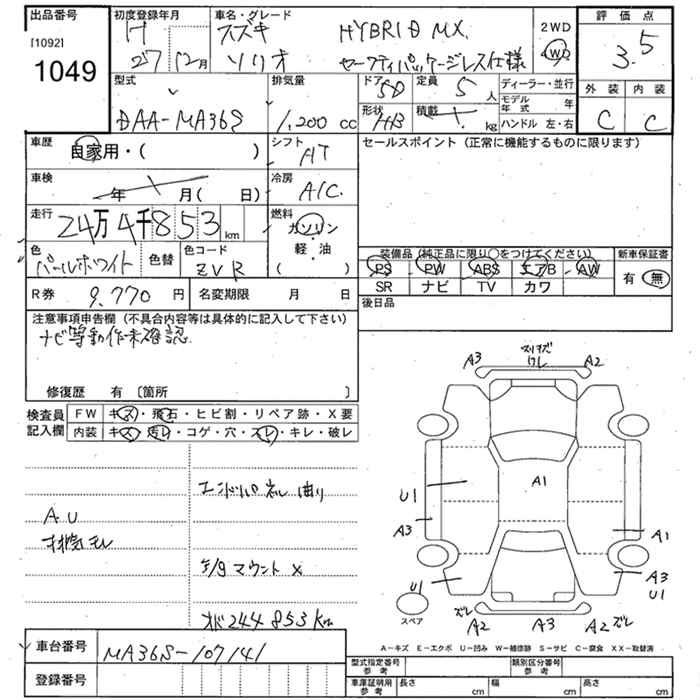 出品番号
[1092]
1049
初度登録年月
H 27 12月
車名・グレード
スズキ ソリオ
HYBRID MX
セーフティパッケージレス仕様
2WD
4WD
評価点
3.5
外装 内装
C C
型式
DAA-MA36S
排気量
1,200 cc
ドア 5D
定員 5 人
形状 HB
積載 kg
ディーラー・並行
モデル年式 年
ハンドル 左・右
車歴
自家用・( )
シフト AT
セールスポイント (正常に機能するものに限ります)
車検
年 月( 日)
冷房 A/C
走行
24万4千853 km
燃料
ガソリン
・
軽・油
( )
色
パールホワイト
色替
色コード
ZVR
装備品 (純正品に限り○をつけてください)
PS PW ABS エアB AW
SR ナビ TV カワ
新車保証書
有 無
R券 9,770 円
名変期限 月 日
後日品
注意事項申告欄 (不具合内容等は具体的に記入して下さい)
ナビ等動作未確認
修復歴 有 〔箇所 〕
検査員記入欄
FW キズ・飛石・ヒビ割・リペア跡・X要
内装 キズ・汚レ・コゲ・穴・スレ・キレ・破レ
AU
エンドパネル 曲り
E/gマウント X
メーター 244853km
A3 A2
A1
U1
A3
A1
U1
A3
U1
スペア
ズレ
A2 A3 A2 ズレ
A-キズ E-エクボ U-凹み W-補修跡 S-サビ C-腐食 XX-取替済
車台番号
MA36S-107141
登録番号
型式指定番号 参考
類別区分番号 参考
車庫証明用 参考
長さ cm
幅 cm
高さ cm